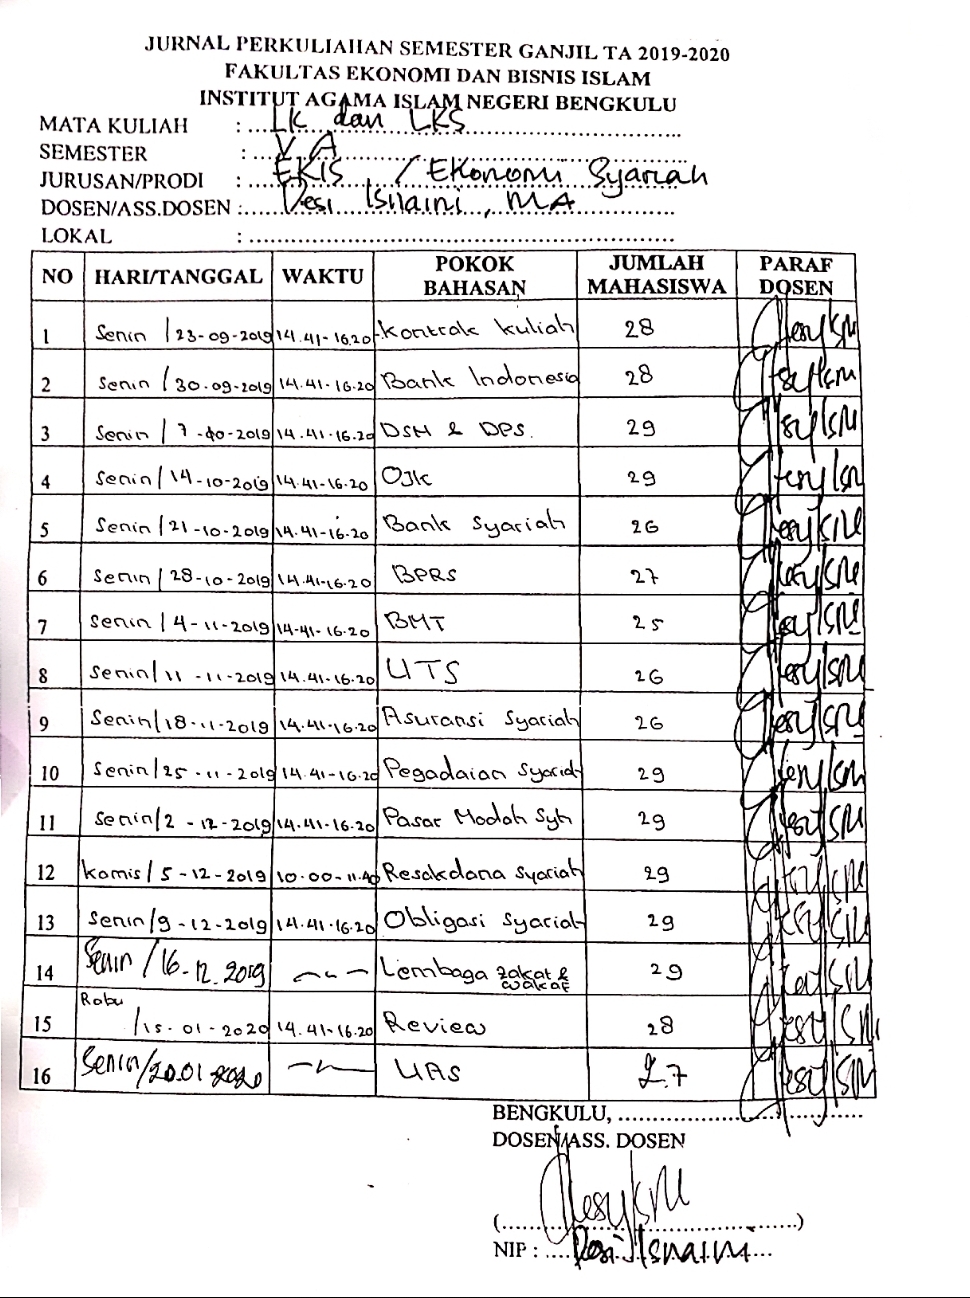 JURNAL PERKULIAHAN SEMESTER GANJIL TA 2019-2020
FAKULTAS EKONOMI DAN BISNIS ISLAM
INSTITUT AGAMA ISLAM NEGERI BENGKULU
MATA KULIAH : LK dan LKS
SEMESTER : V A
JURUSAN/PRODI : EKIS / Ekonomi Syariah
DOSEN/ASS.DOSEN : Desi Isnaini, MA
LOKAL : ..........
NO HARI/TANGGAL WAKTU POKOK BAHASAN JUMLAH MAHASISWA PARAF DOSEN
1 Senin / 23-09-2019 14.41-16.20 Kontrak Kuliah 28
2 Senin / 30-09-2019 14.41-16.20 Bank Indonesia 28
3 Senin / 7-10-2019 14.41-16.20 DSN & DPS. 29
4 Senin / 14-10-2019 14.41-16.20 OJK 29
5 Senin / 21-10-2019 14.41-16.20 Bank Syariah 26
6 Senin / 28-10-2019 14.41-16.20 BPRS 27
7 Senin / 4-11-2019 14-41-16.20 BMT 25
8 Senin / 11-11-2019 14.41-16.20 UTS 26
9 Senin / 18-11-2019 14.41-16.20 Asuransi Syariah 26
10 Senin / 25-11-2019 14.41-16.20 Pegadaian Syariah 29
11 Senin / 2-12-2019 14.41-16.20 Pasar Modah Syh 29
12 Kamis / 5-12-2019 10.00-11.40 Resakdana Syariah 29
13 Senin / 9-12-2019 14.41-16.20 Obligasi Syariah 29
14 Senin / 16-12.2019 Lembaga zakat & wakaf 29
15 Rabu / 15-01-2020 14.41-16.20 Review 28
16 Senin / 20.01 2020 UAS 27
BENGKULU, ..........
DOSEN/ASS. DOSEN
(..........)
NIP : Desi Isnaini